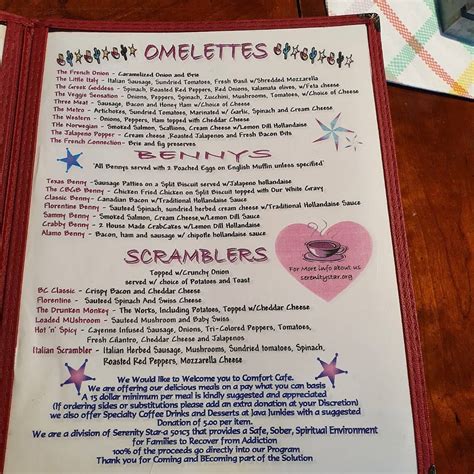 OMELETTES
The French Onion - Caramelized Onion and Brie
The Little Italy - Italian Sausage, Sundried Tomatoes, Fresh Basil w/Shredded Mozzarella
The Greek Goddess - Spinach, Roasted Red Peppers, Red Onions, Kalamata olives, w/Feta cheese
The Veggie Sensation - Onions, Peppers, Spinach, Zucchini, Mushrooms, Tomatoes, w/Choice of Cheese
Three Meat - Sausage, Bacon and Honey Ham w/Choice of Cheese
The Metro - Artichokes, Sundried Tomatoes, Marinated w/ Garlic, Spinach and Cream Cheese
The Western - Onions, Peppers, Ham topped with Cheddar Cheese
THe Norwegian - Smoked Salmon, Scallions, Cream Cheese w/Lemon Dill Hollandaise
The Jalapeno Popper - Cream cheese ,Roasted Jalapenos and Fresh Bacon Bits
The French Connection- Brie and fig preserves
BENNYS
'All Bennys served with 2 Poached Eggs on English Muffin unless specified'
Texas Benny -Sausage Patties on a Split Biscuit served w/Jalapeno hollandaise
The CBGB Benny - Chicken Fried Chicken on Split Biscuit topped with Our White Gravy
Classic Benny- Canadian Bacon w/Traditional Hollandaise Sauce
Florentine Benny - Sauteed Spinach, sundried herbed cream cheese w/Traditional Hollandaise Sauce
Sammy Benny - Smoked Salmon, Cream Cheese w/Lemon Dill Sauce
Crabby Benny - 2 House Made CrabCakes w/Lemon Dill Hollandaise
Alamo Benny - Bacon, ham and sausage w/ chipotle hollandaise sauce
SCRAMBLERS
Topped w/Crunchy Onion
served w/ choice of Potatoes and Toast
BC Classic - Crispy Bacon and Cheddar Cheese
Florentine - Sauteed Spinach And Swiss Cheese
The Drunken Monkey - The Works, Including Potatoes, Topped w/Cheddar Cheese
Leaded MUshroom - Sauteed Mushroom and Baby Swiss
Hot 'n' Spicy - Cayenne Infused Sausage, Onions, Tri-Colored Peppers, Tomatoes,
Fresh Cilantro, Cheddar Cheese and Jalapenos
Italian Scrambler - Italian Herbed Sausage, Mushrooms, Sundried tomatoes, Spinach,
Roasted Red Peppers, Mozzarella Cheese
For More info about us
serenitystar.org
We Would Like to Welcome you to Comfort Cafe.
We are offering our delicious meals on a pay what you can basis
A 15 dollar minimum per meal is kindly suggested and appreciated
(If ordering sides or substitutions please add an extra donation at your Discretion)
we also offer Specialty Coffee Drinks and Desserts at Java Junkies with a suggested
Donation of 5.00 per item.
We are a division of Serenity Star-a 501c3 that provides a Safe, Sober, Spiritual Environment
for Families to Recover from Addiction
100% of the proceeds go directly into our Program
Thank you for Coming and BEcoming part of the Solution